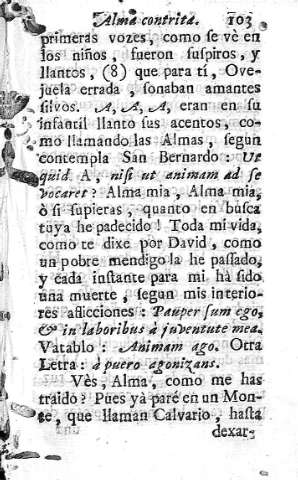 Alma contrita. 103
primeras vozes, como se vè en
los niños, fueron suspiros, y
llantos, (8) que para tí, Ove-
juela errada, sonaban amantes
silvos. A, A, A, eran en su
infantil llanto sus acentos, co-
mo llamando las Almas, segun
contempla San Bernardo: Ut
quid A, nisi ut animam ad se
vocaret? Alma mia, Alma mia,
ò si supieras, quanto en busca
tuya he padecido! Toda mi vida,
como te dixe por David, como
un pobre mendigo la he passado,
y cada instante para mi há sido
una muerte, segun mis interio-
res aflicciones: Pauper sum ego,
& in laboribus à juventute mea.
Vatablo: Animam ago. Otra
Letra: à puero agonizans.
Vès, Alma, como me has
traido? Pues yà paré en un Mon-
te, que llaman Calvario, hasta
dexar-